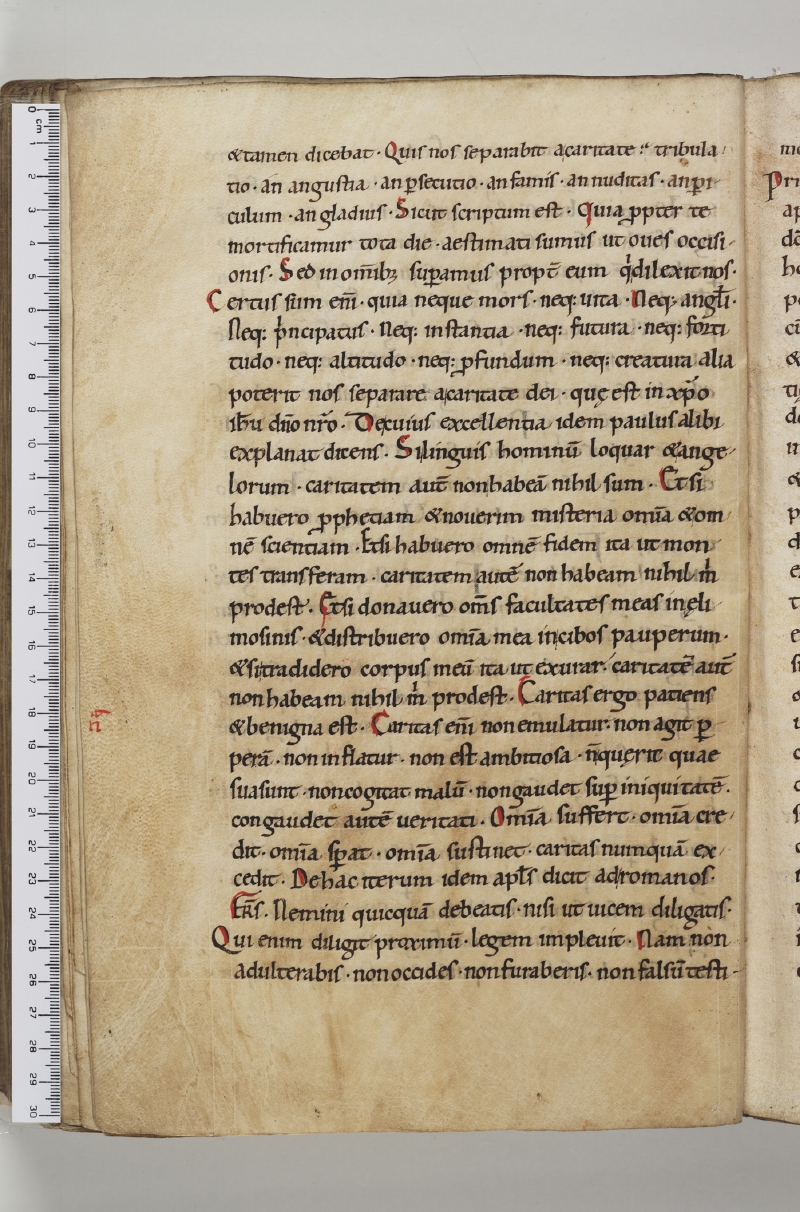 &tamen dicebat· Quis nos separabit acaritate? tribula
tio· an angustia· an ꝑsecutio· an famis· an nuditas· an ꝑi
culum· an gladius· Sicut scriptum est· Quia ꝓpter te
mortificamur tota die· aestimati sumus ut oues occisi
onis· Sed in omībꝫ suꝑamus propt̄ eum q̇dilexit nos·
Certus sum eni̅· quia neque mors· neq: uita· Neq: angl̄i·
Neq: pͥncipatus· Neq: instantia· neq: futura· neq: forti
tudo· neq: altitudo· neq: ꝓfundum· neq: creatura alia
poterit nos separare acaritate dei· quę est in xp̄o
ih̄u dn̄o nr̄o· Decuius excellentia idem paulus alibi
explanat dicens· Si linguis hominū loquar &ange
lorum· caritatem aut̄ non habeā nihil sum· Et si
habuero ꝓphetiam &nouerim misteria omīa &om
nē scientiam· Etsi habuero omnē fidem ita ut mon
tes transferam· caritatem autē non habeam nihil mͥ
prodest· Etsi donauero om̄s facultates meas in eli
mosinis· &distribuero omīa mea incibos pauperum·
&si tradidero corpus meū ita ut exurar· caritatē aut̄
non habeam nihil mͥ prodest· Caritas ergo patiens
&benigna est· Caritas eni̅ non emulatur· non agit ꝑ
perā· non inflatur· non est ambitiosa· n̄querit quae
sua sunt· non cogitat malū· non gaudet suꝑ iniquitatē·
congaudet autē ueritati· Omīa suffert· omīa cre
dit· omīa sꝑat· omīa sustinet· caritas numquā ex
cedit· De hac iterum idem apl̄s dicit ad romanos·
Fr̄s· Nemini quicquā debeatis· nisi ut uicem diligatis·
Qui enim diligit proximū· legem impleuit· Nam non
adulterabis· non occides· non furaberis· non falsū testi